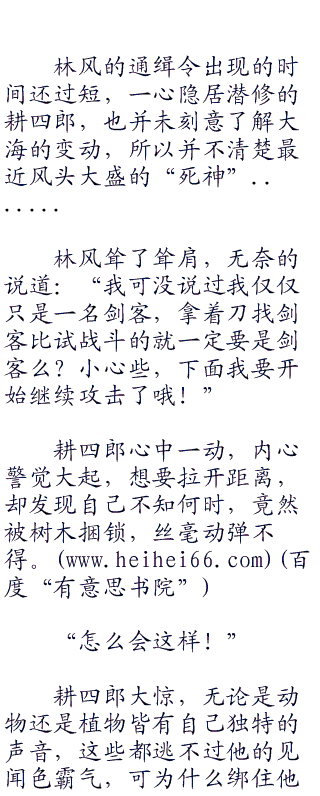 林风的通缉令出现的时
间还过短，一心隐居潜修的
耕四郎，也并未刻意了解大
海的变动，所以并不清楚最
近风头大盛的“死神”..
.....
林风耸了耸肩，无奈的
说道：“我可没说过我仅仅
只是一名剑客，拿着刀找剑
客比试战斗的就一定要是剑
客么？小心些，下面我要开
始继续攻击了哦！”
耕四郎心中一动，内心
警觉大起，想要拉开距离，
却发现自己不知何时，竟然
被树木捆锁，丝毫动弹不
得。(www.heihei66.com)(百
度“有意思书院”)
“怎么会这样！”
耕四郎大惊，无论是动
物还是植物皆有自己独特的
声音，这些都逃不过他的见
闻色霸气，可为什么绑住他